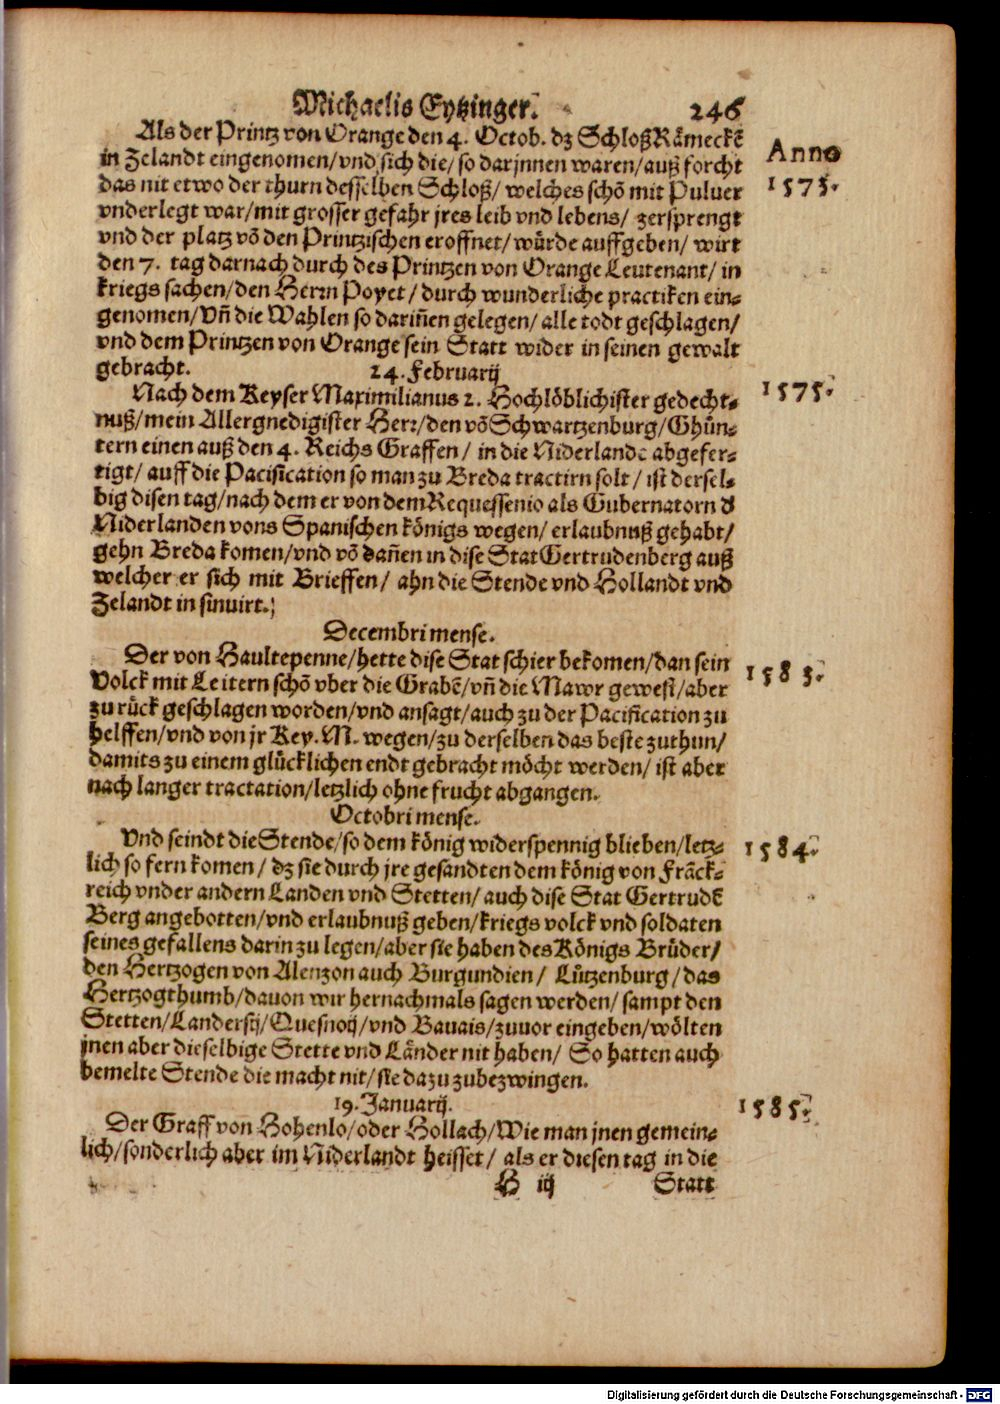 Michaelis Eytzinger. 246
Als der Printz von Orange den 4. Octob. dz Schloß Rämeckē
in Zelandt eingenomen/vnd sich die/so darjnnen waren/auß forcht
Anno
das nit etwo der thurn desselben Schloß/welches schō mit Puluer
1575.
vnderlegt war/mit grosser gefahr jres leib vnd lebens/ zersprengt
vnd der platz vō den Printzischen eroffnet/würde auffgeben/ wirt
den 7. tag darnach durch des Printzen von Orange Leutenant/ in
kriegs sachen/den Herrn Poyet/durch wunderliche practiken ein=
genomen/Vñ die Wahlen so dariñen gelegen/alle todt geschlagen/
vnd dem Printzen von Orange sein Statt wider in seinen gewalt
gebracht.
24. Februarij
Nach dem Keyser Maximilianus 2. Hochlöblichister gedecht=
1575.
nuß/mein Allergnedigister Herr/den vō Schwartzenburg/Ghün=
tern einen auß den 4. Reichs Graffen/ in die Niderlande abgefer=
tigt/ auff die Pacification so man zu Breda tractirn solt/ist dersel=
big disen tag/nach dem er von dem Requessenio als Gubernatorn d̕
Niderlanden vons Spanischen königs wegen/ erlaubnuß gehabt/
gehn Breda komen/vnd vō dañen in dise Stat Gertrudenberg auß
welcher er sich mit Brieffen/ ahn die Stende vnd Hollandt vnd
Zelandt in sinuirt.
Decembri mense.
Der von Haultepenne/hette dise Stat schier bekomen/dan sein
1583.
Volck mit Leitern schō vber die Grabē/vñ die Mawr gewest/aber
zu rück geschlagen worden/vnd ansagt/auch zu der Pacification zu
helffen/vnd von jr Key. M. wegen/zu derselben das beste zuthun/
damits zu einem glücklichen endt gebracht möcht werden/ ist aber
nach langer tractation/letzlich ohne frucht abgangen.
Octobri mense.
Vnd seindt die Stende/so dem könig widerspennig blieben/letz=
1584.
lich so fern komen/dz sie durch jre gesandten dem könig von Frāck=
reich vnder andern Landen vnd Stetten/ auch dise Stat Gertrudē
Berg angebotten/vnd erlaubnuß geben/kriegs volck vnd soldaten
seines gefallens darin zu legen/aber sie haben des Königs Brüder/
den Hertzogen von Alenzon auch Burgundien/ Lützenburg/das
Hertzogthumb/dauon wir hernachmals sagen werden/ sampt den
Stetten/Landersij/Quesnoij/vnd Bauais/zuuor eingeben/wölten
jnen aber dieselbige Stette vnd Länder nit haben/ So hatten auch
bemelte Stende die macht nit/sie dazu zubezwingen.
19. Januarij.
1585.
Der Graff von Hohenlo/oder Hollach/Wie man jnen gemein=
lich/sonderlich aber im Niderlandt heisset/ als er diesen tag in die
H iij Statt
Digitalisierung gefördert durch die Deutsche Forschungsgemeinschaft - DFG